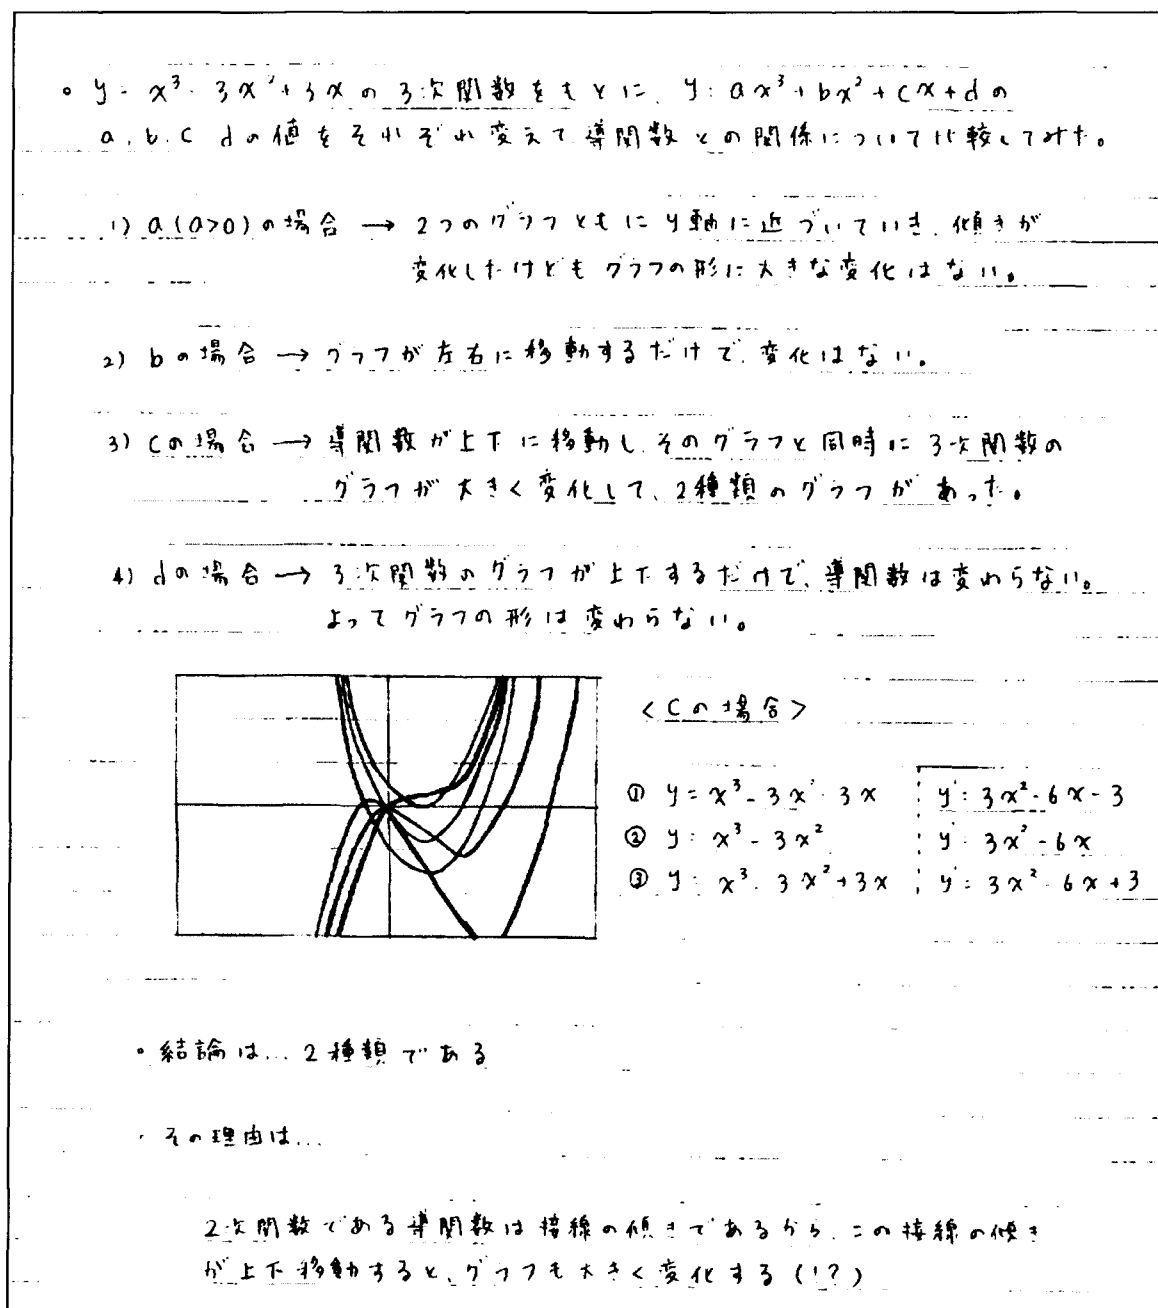 。y = x³ - 3x² + 3x の 3次関数をもとに、y = ax³ + bx² + cx + d の
a, b, c, d の値をそれぞれ変えて導関数との関係について比較してみた。
1) a (a>0) の場合 → 2つのグラフともにy軸に近づいていき、傾きが
変化したけどもグラフの形に大きな変化はない。
2) b の場合 → グラフが左右に移動するだけで、変化はない。
3) c の場合 → 導関数が上下に移動し、そのグラフと同時に3次関数の
グラフが大きく変化して、2種類のグラフがあった。
4) d の場合 → 3次関数のグラフが上下するだけで、導関数は変わらない。
よってグラフの形は変わらない。
<cの場合>
① y = x³ - 3x² - 3x y' = 3x² - 6x - 3
② y = x³ - 3x² y' = 3x² - 6x
③ y = x³ - 3x² + 3x y' = 3x² - 6x + 3
・結論は… 2種類である
・その理由は…
2次関数である導関数は接線の傾きであるから、この接線の傾き
が上下移動すると、グラフも大きく変化する (!?)